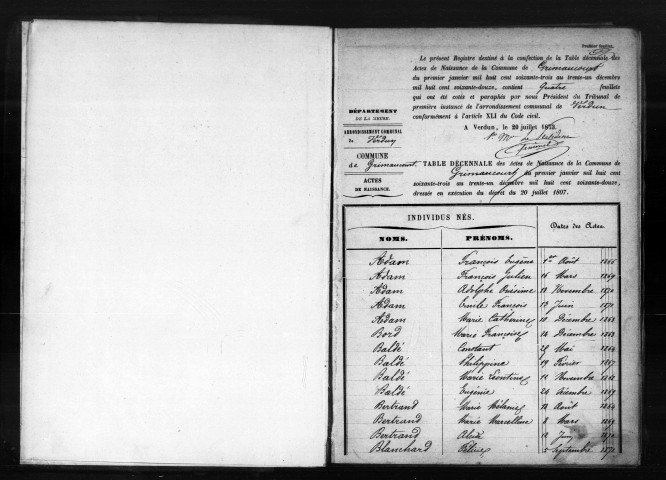 Premier feuillet.
Le présent Registre destiné à la confection de la Table décennale des
Actes de Naissance de la Commune de Grimaucourt
du premier janvier mil huit cent soixante-trois au trente-un décembre
mil huit cent soixante-douze, contient Quatre feuillets
qui ont été cotés et paraphés par nous Président du Tribunal de
première instance de l'arrondissement communal de Verdun
conformément à l'article XLI du Code civil.
A Verdun, le 20 juillet 1873.
DÉPARTEMENT
DE LA MEUSE.
ARRONDISSEMENT COMMUNAL
de Verdun
COMMUNE
de Grimaucourt
ACTES
DE NAISSANCE.
TABLE DÉCENNALE des Actes de Naissance de la Commune de
Grimaucourt du premier janvier mil huit cent
soixante-trois au trente-un décembre mil huit cent soixante-douze,
dressée en exécution du décret du 20 juillet 1807.
INDIVIDUS NÉS. Dates des Actes.
NOMS. PRÉNOMS.
Adam François Eugène 1er Août
Adam François Julien 16 Mars 1869
Adam Adolphe Onésime 18 Novembre 1870
Adam François Juin
Adam Marie Catherine 10 Décembre 1868
Bord Marie Françoise 12 Décembre 1863
Baldé Constant 29 Mai 1864
Baldé Philippine 19 Février 1867
Baldé Marie Léontine 12 Novembre
Baldé Eugénie 24 Décembre 1869
Bertrand Marie Mélanie 28 Août 1864
Bertrand Marie Marcelline 8 Mars 1869
Bertrand Alix 12 Juin
Blanchard Septembre